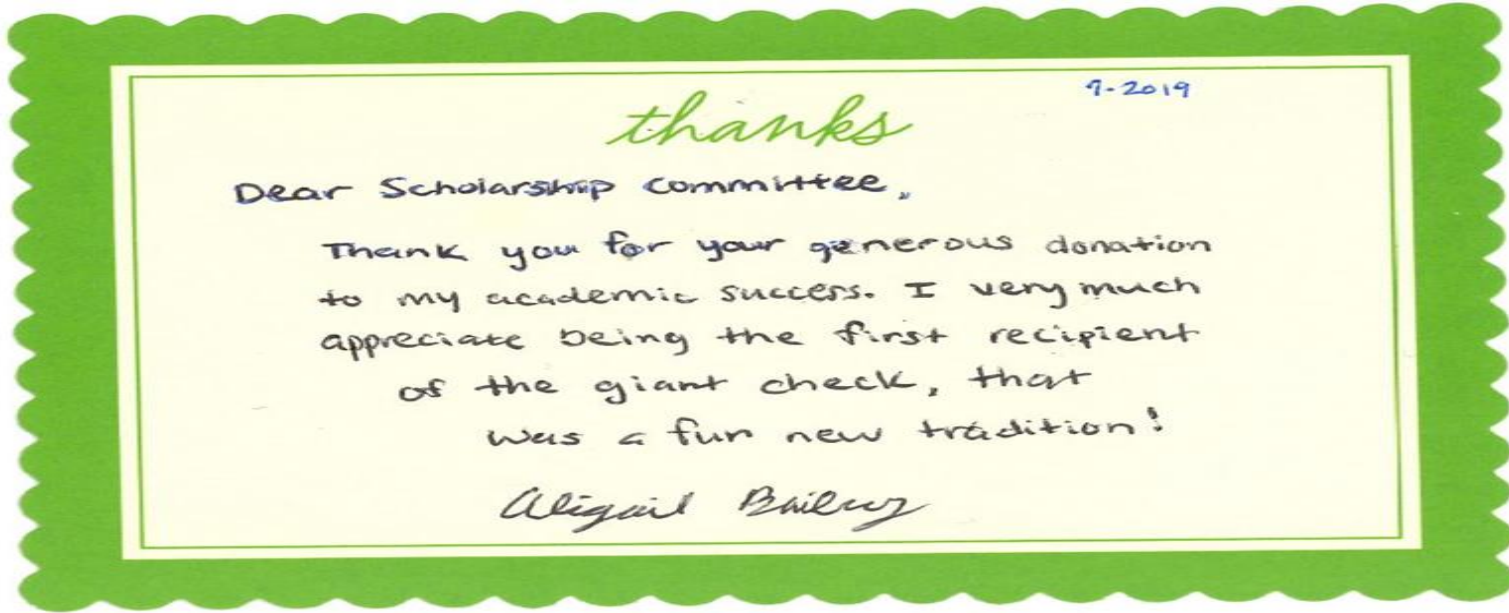 7-2019
thanks
Dear Scholarship committee,
Thank you for your generous donation
to my academic success. I very much
appreciate being the first recipient
of the giant check, that
was a fun new tradition!
Abigail Bailey